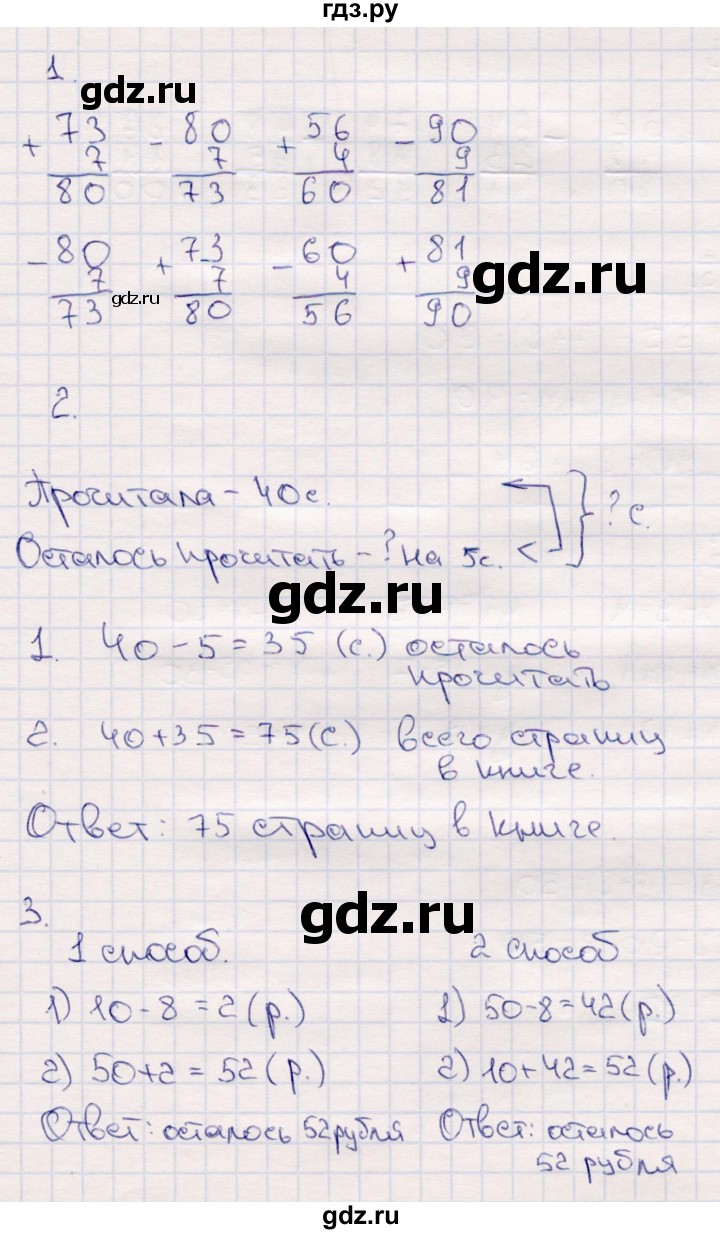 гдз.ру
1.
gdz.ru
+ 73 - 80 + 56 - 90
7 7 4 9
80 73 60 81
- 80 + 73 - 60 + 81
gdz.ru
7 7 4 9
gdz.ru
73 80 56 90
2.
Прочитала - 40с.
? с.
Осталось прочитать - ? на 5с. <
gdz.ru
1. 40 - 5 = 35 (с.) осталось
прочитать
2. 40 + 35 = 75 (с.) всего страниц
в книге.
Ответ: 75 страниц в книге.
3.
gdz.ru
1 способ.
1) 10 - 8 = 2 (р.)
2) 50 + 2 = 52 (р.)
Ответ: осталось 52 рубля
2 способ
1) 50 - 8 = 42 (р.)
2) 10 + 42 = 52 (р.)
Ответ: осталось
52 рубля
gdz.ru